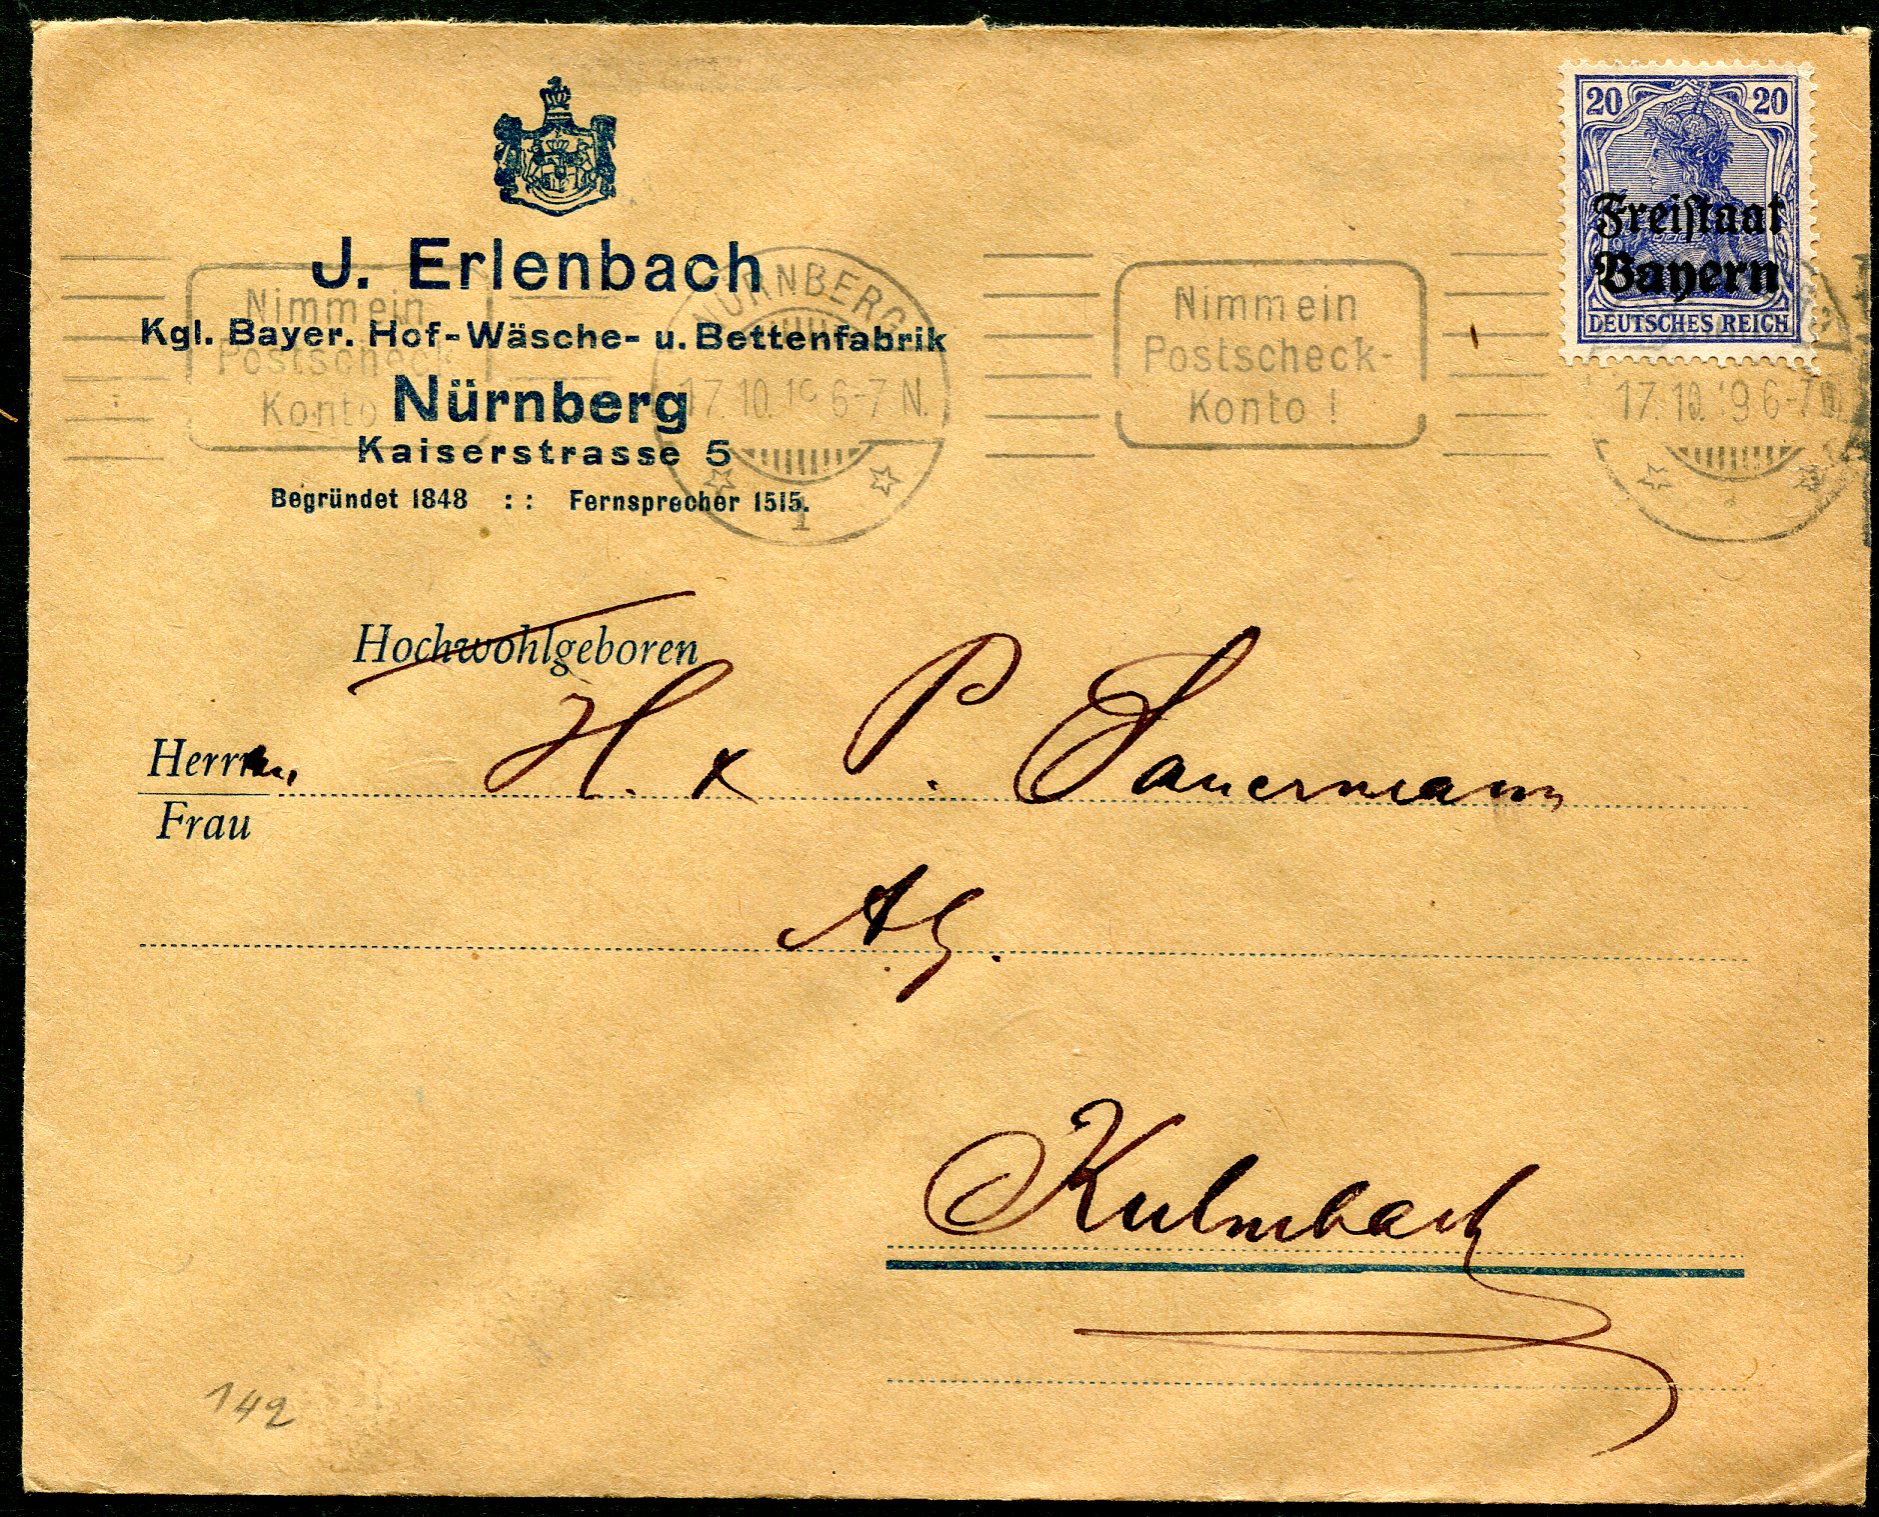 J. Erlenbach
Kgl. Bayer. Hof-Wäsche- u. Bettenfabrik
Nürnberg
Kaiserstrasse 5
Begründet 1848 :: Fernsprecher 1515.
20 20
Freistaat
Bayern
DEUTSCHES REICH
Nimm ein
Postscheck-
Konto
NÜRNBERG
17.10.19 6-7 N.
1
Nimm ein
Postscheck-
Konto!
17.10.19 6-7 N.
Hochwohlgeboren
Herren,
Frau
H. x P. Sauermann
A.G.
Kulmbach
142